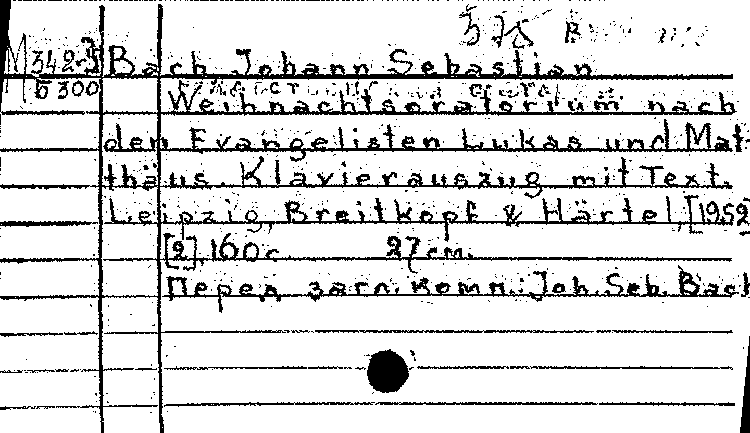 578
М 342-5 Bach Johann Sebastian
Б 300
Weihnachtsoratorium nach
den Evangelisten Lukas und Mat-
thäus. Klavierauszug mit Text.
Leipzig, Breitkopf & Härtel, [1952]
[2], 160 с. 27 см.
Перед загл. комп.: Joh. Seb. Bach